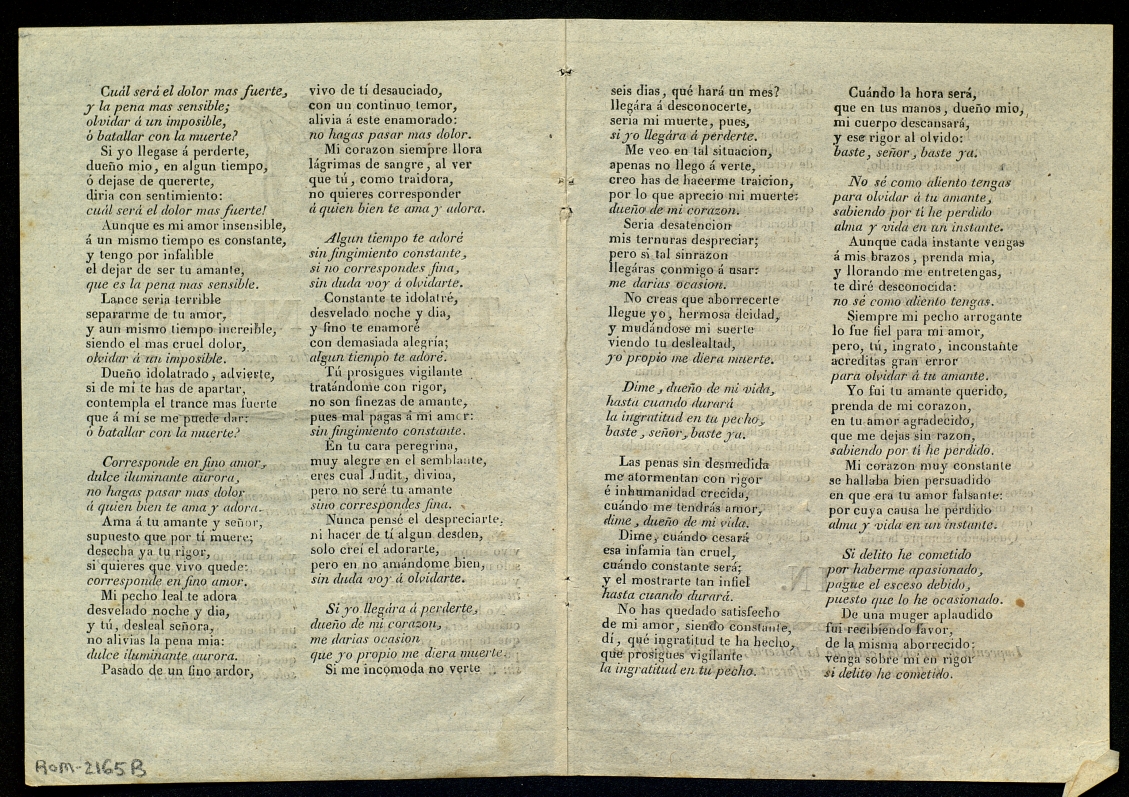 Cuál será el dolor mas fuerte,
y la pena mas sensible;
olvidar á un imposible,
ó batallar con la muerte?
Si yo llegase á perderte,
dueño mio, en algun tiempo,
ó dejase de quererte,
diria con sentimiento:
cuál será el dolor mas fuerte!
Aunque es mi amor insensible,
á un mismo tiempo es constante,
y tengo por infalible
el dejar de ser tu amante,
que es la pena mas sensible.
Lance seria terrible
separarme de tu amor,
y aun mismo tiempo increible,
siendo el mas cruel dolor,
olvidar á un imposible.
Dueño idolatrado, advierte,
si de mí te has de apartar,
contempla el trance mas fuerte
que á mí se me puede dar:
ó batallar con la muerte?
Corresponde en fino amor,
dulce iluminante aurora,
no hagas pasar mas dolor
á quien bien te ama y adora.
Ama á tu amante y señor,
supuesto que por tí muere;
desecha ya tu rigor,
si quieres que vivo quede:
corresponde en fino amor.
Mi pecho leal te adora
desvelado noche y dia,
y tú, desleal señora,
no alivias la pena mia:
dulce iluminante aurora.
Pasado de un fino ardor,
vivo de tí desauciado,
con un continuo temor,
alivia á este enamorado:
no hagas pasar mas dolor.
Mi corazon siempre llora
lágrimas de sangre, al ver
que tú, como traidora,
no quieres corresponder
á quien bien te ama y adora.
Algun tiempo te adoré
sin fingimiento constante,
si no correspondes fina,
sin duda voy á olvidarte.
Constante te idolatré,
desvelado noche y dia,
y fino te enamoré
con demasiada alegría;
algun tiempo te adoré.
Tú prosigues vigilante
tratándome con rigor,
no son finezas de amante,
pues mal pagas á mi amor:
sin fingimiento constante.
En tu cara peregrina,
muy alegre en el semblante,
eres cual Judit, divina,
pero no seré tu amante
sino correspondes fina.
Nunca pensé el despreciarte,
ni hacer de tí algun desden,
solo creí el adorarte,
pero en no amándome bien,
sin duda voy á olvidarte.
Si yo llegára á perderte,
dueño de mi corazon,
me darias ocasion
que yo propio me diera muerte.
Si me incomoda no verte
seis dias, qué hará un mes?
llegára á desconocerte,
seria mi muerte, pues,
si yo llegára á perderte.
Me veo en tal situacion,
apenas no llego á verte,
creo has de hacerme traicion,
por lo que aprecio mi muerte:
dueño de mi corazon.
Seria desatencion
mis ternuras despreciar;
pero si tal sinrazon
llegáras conmigo á usar:
me darias ocasion.
No creas que aborrecerte
llegue yo, hermosa deidad,
y mudándose mi suerte
viendo tu deslealtad,
yo propio me diera muerte.
Dime, dueño de mi vida,
hasta cuando durará
la ingratitud en tu pecho,
baste, señor, baste ya.
Las penas sin desmedida
me atormentan con rigor
é inhumanidad crecida,
cuándo me tendrás amor,
dime, dueño de mi vida.
Dime, cuándo cesará
esa infamia tan cruel,
cuándo constante será;
y el mostrarte tan infiel
hasta cuando durará.
No has quedado satisfecho
de mi amor, siendo constante,
dí, qué ingratitud te ha hecho,
que prosigues vigilante
la ingratitud en tu pecho.
Cuándo la hora será,
que en tus manos, dueño mio,
mi cuerpo descansará,
y ese rigor al olvido:
baste, señor, baste ya.
No sé como aliento tengas
para olvidar á tu amante,
sabiendo por tí he perdido
alma y vida en un instante.
Aunque cada instante vengas
á mis brazos, prenda mia,
y llorando me entretengas,
te diré desconocida:
no sé como aliento tengas.
Siempre mi pecho arrogante
lo fue fiel para mi amor,
pero, tú, ingrato, inconstante
acreditas gran error
para olvidar á tu amante.
Yo fui tu amante querido,
prenda de mi corazon,
en tu amor agradecido,
que me dejas sin razon,
sabiendo por tí he perdido.
Mi corazon muy constante
se hallaba bien persuadido
en que era tu amor falsante:
por cuya causa he perdido
alma y vida en un instante.
Si delito he cometido
por haberme apasionado,
pague el esceso debido,
puesto que lo he ocasionado.
De una muger aplaudido
fui recibiendo favor,
de la misma aborrecido:
venga sobre mí en rigor
si delito he cometido.
ROM-2165B